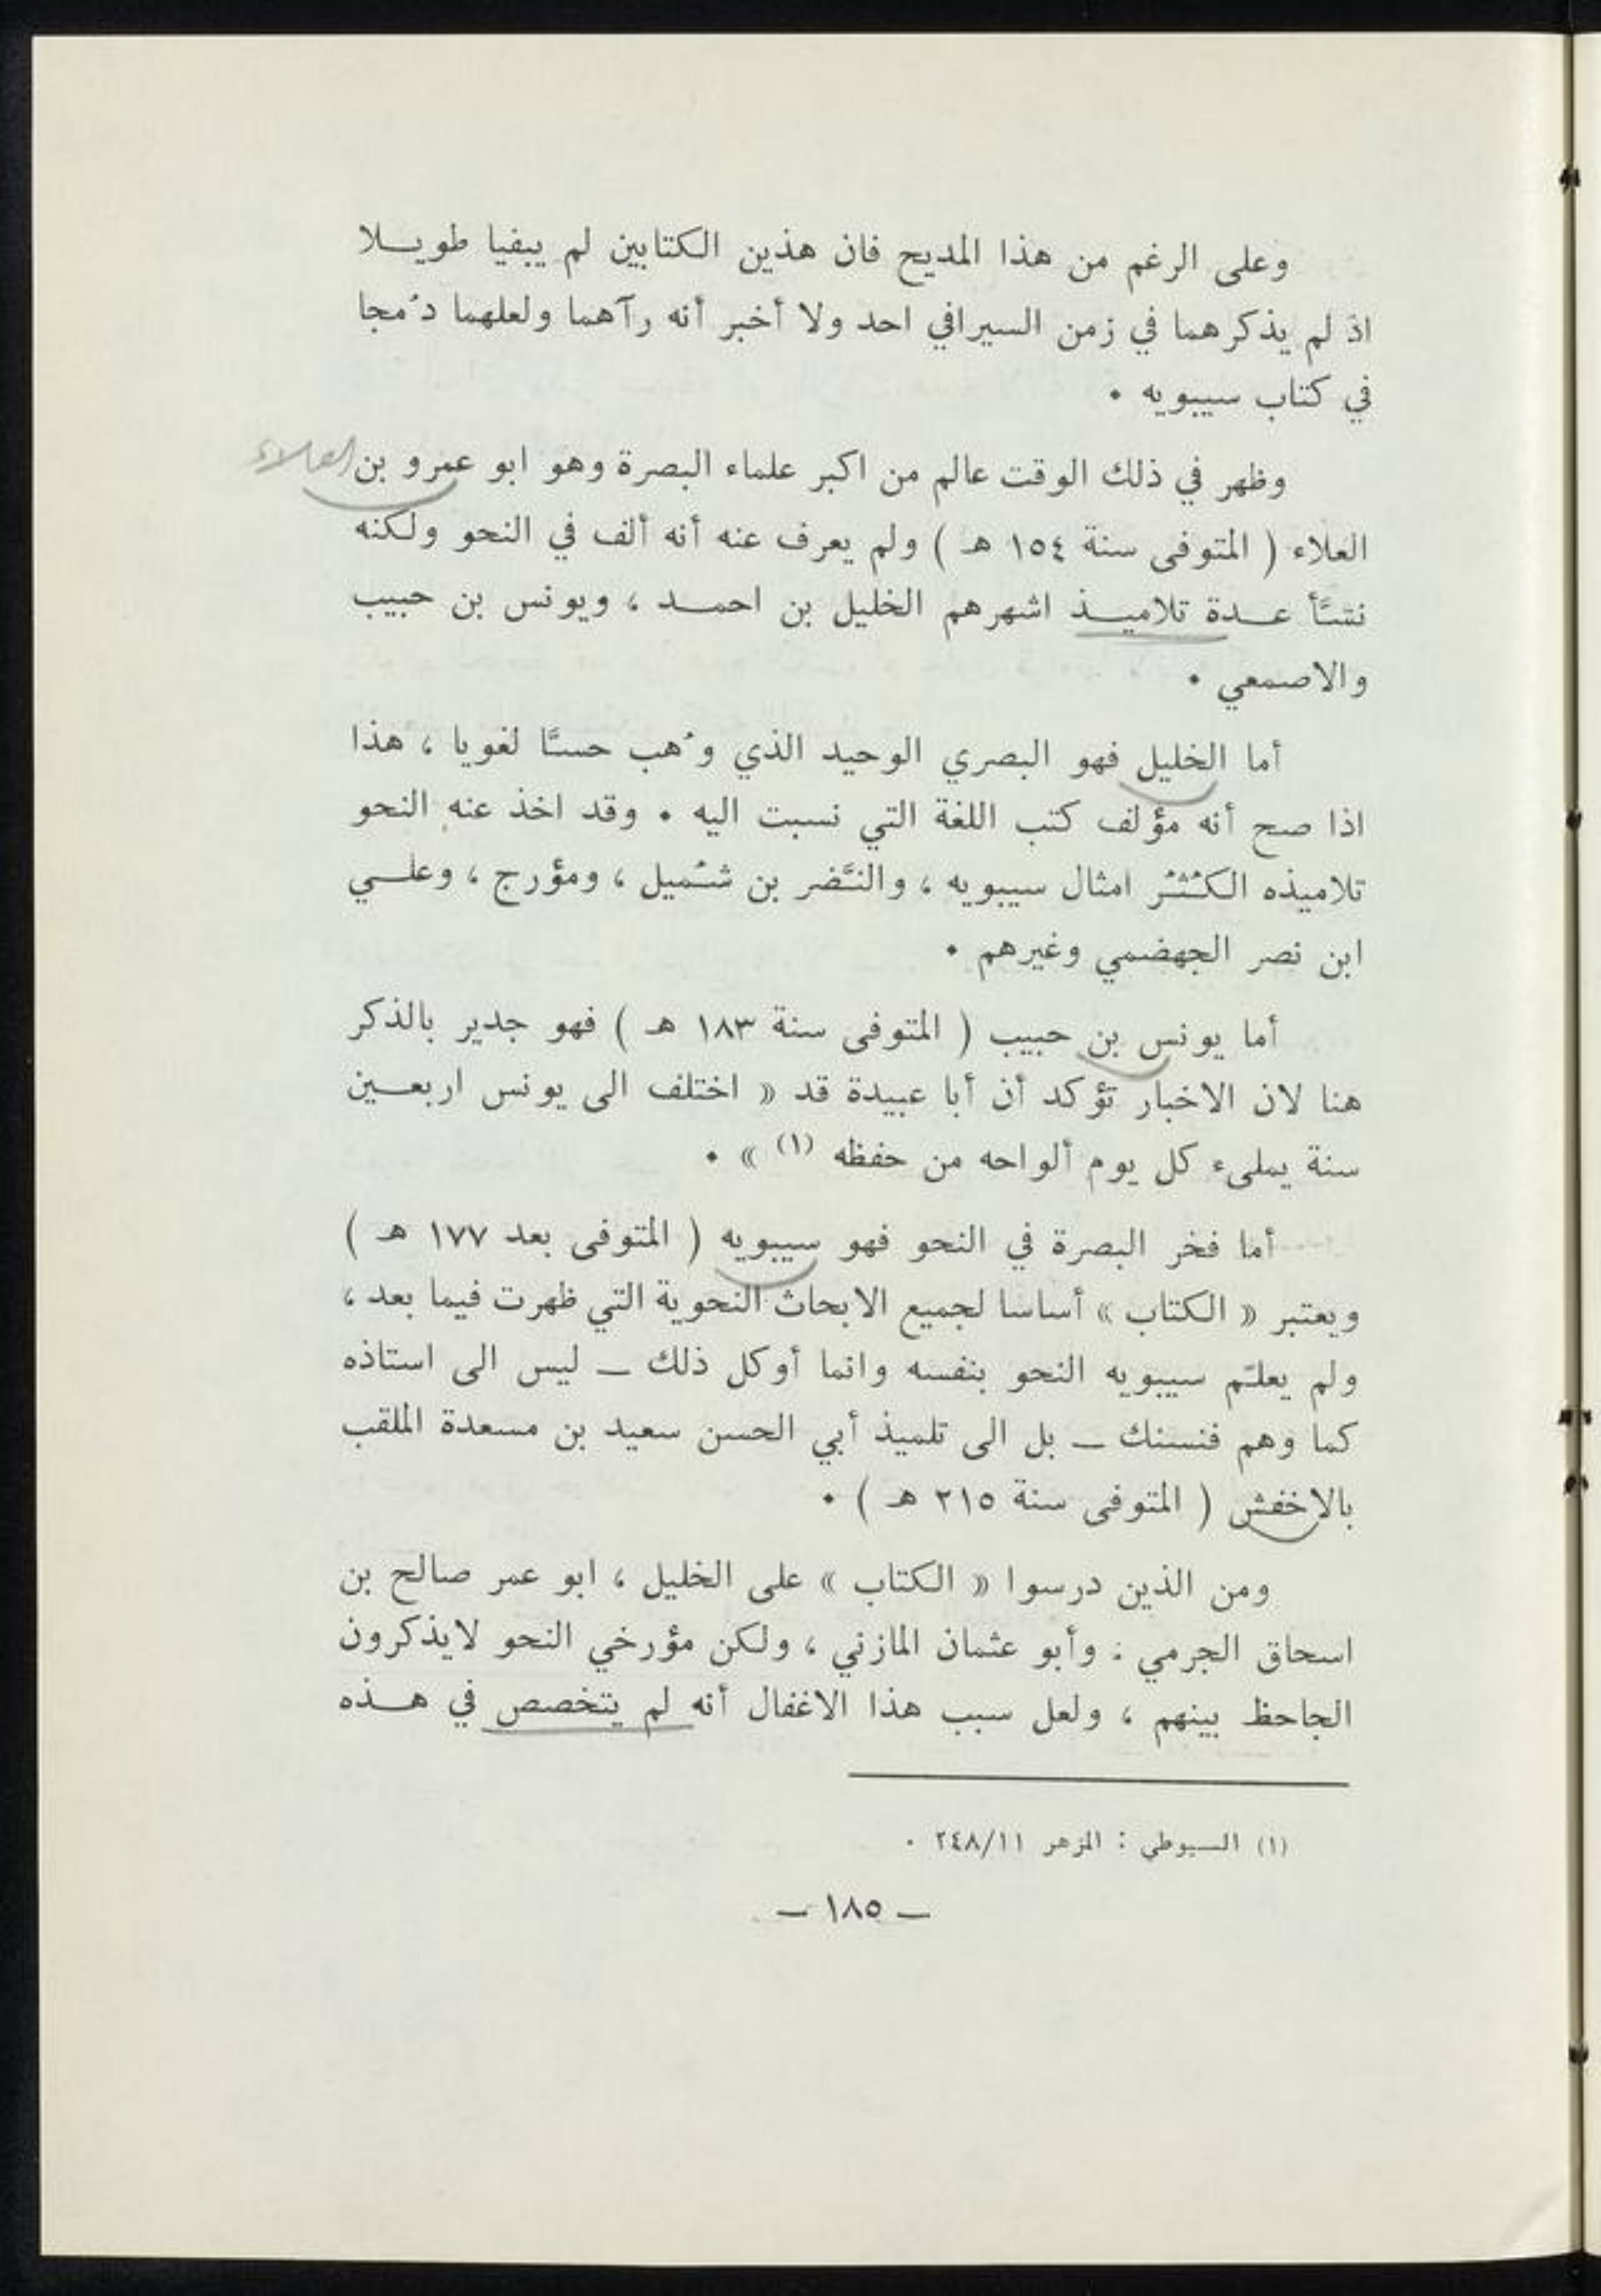 وعلى الرغم من هذا المديح فان هذين الكتابين لم يبفيا طويـــلا
اذ لم يذكرهما في زمن السيرافي احد ولا أخبر أنه رآهما ولعلهما دُمجا
في كتاب سيبويه •
وظهر في ذلك الوقت عالم من اكبر علماء البصرة وهو ابو عمرو بن العلاء
العلاء ( المتوفى سنة ١٥٤ هـ ) ولم يعرف عنه أنه ألف في النحو ولكنه
نشَّأ عـــدة تلاميـــذ اشهرهم الخليل بن احمـــد ، ويونس بن حبيب
والاصمعي •
أما الخليل فهو البصري الوحيد الذي وُهب حسًّا لغويا ، هذا
اذا صح أنه مؤلف كتب اللغة التي نسبت اليه • وقد اخذ عنه النحو
تلاميذه الكُثُر امثال سيبويه ، والنَّضر بن شُميل ، ومؤرج ، وعلـــي
ابن نصر الجهضمي وغيرهم •
أما يونس بن حبيب ( المتوفى سنة ١٨٣ هـ ) فهو جدير بالذكر
هنا لان الاخبار تؤكد أن أبا عبيدة قد « اختلف الى يونس اربعـــين
سنة يملىء كل يوم ألواحه من حفظه (١) » •
أما فخر البصرة في النحو فهو سيبويه ( المتوفى بعد ١٧٧ هـ )
ويعتبر « الكتاب » أساسا لجميع الابحاث النحوية التي ظهرت فيما بعد ،
ولم يعلّم سيبويه النحو بنفسه وانما أوكل ذلك — ليس الى استاذه
كما وهم فنسنك — بل الى تلميذ أبي الحسن سعيد بن مسعدة الملقب
بالاخفش ( المتوفى سنة ٢١٥ هـ ) •
ومن الذين درسوا « الكتاب » على الخليل ، ابو عمر صالح بن
اسحاق الجرمي : وأبو عثمان المازني ، ولكن مؤرخي النحو لايذكرون
الجاحظ بينهم ، ولعل سبب هذا الاغفال أنه لم يتخصص في هـــذه
(١) السيوطي : المزهر ٢٤٨/١١ •
— ١٨٥ —